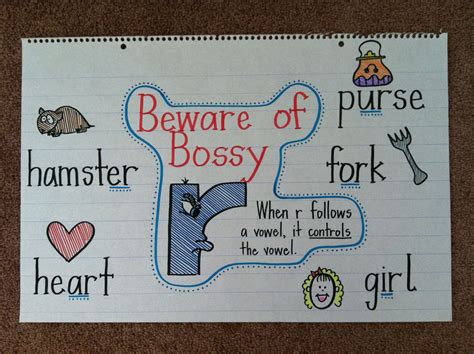 Beware of
Bossy
r
When r follows
a vowel, it controls
the vowel.
hamster
heart
purse
fork
girl